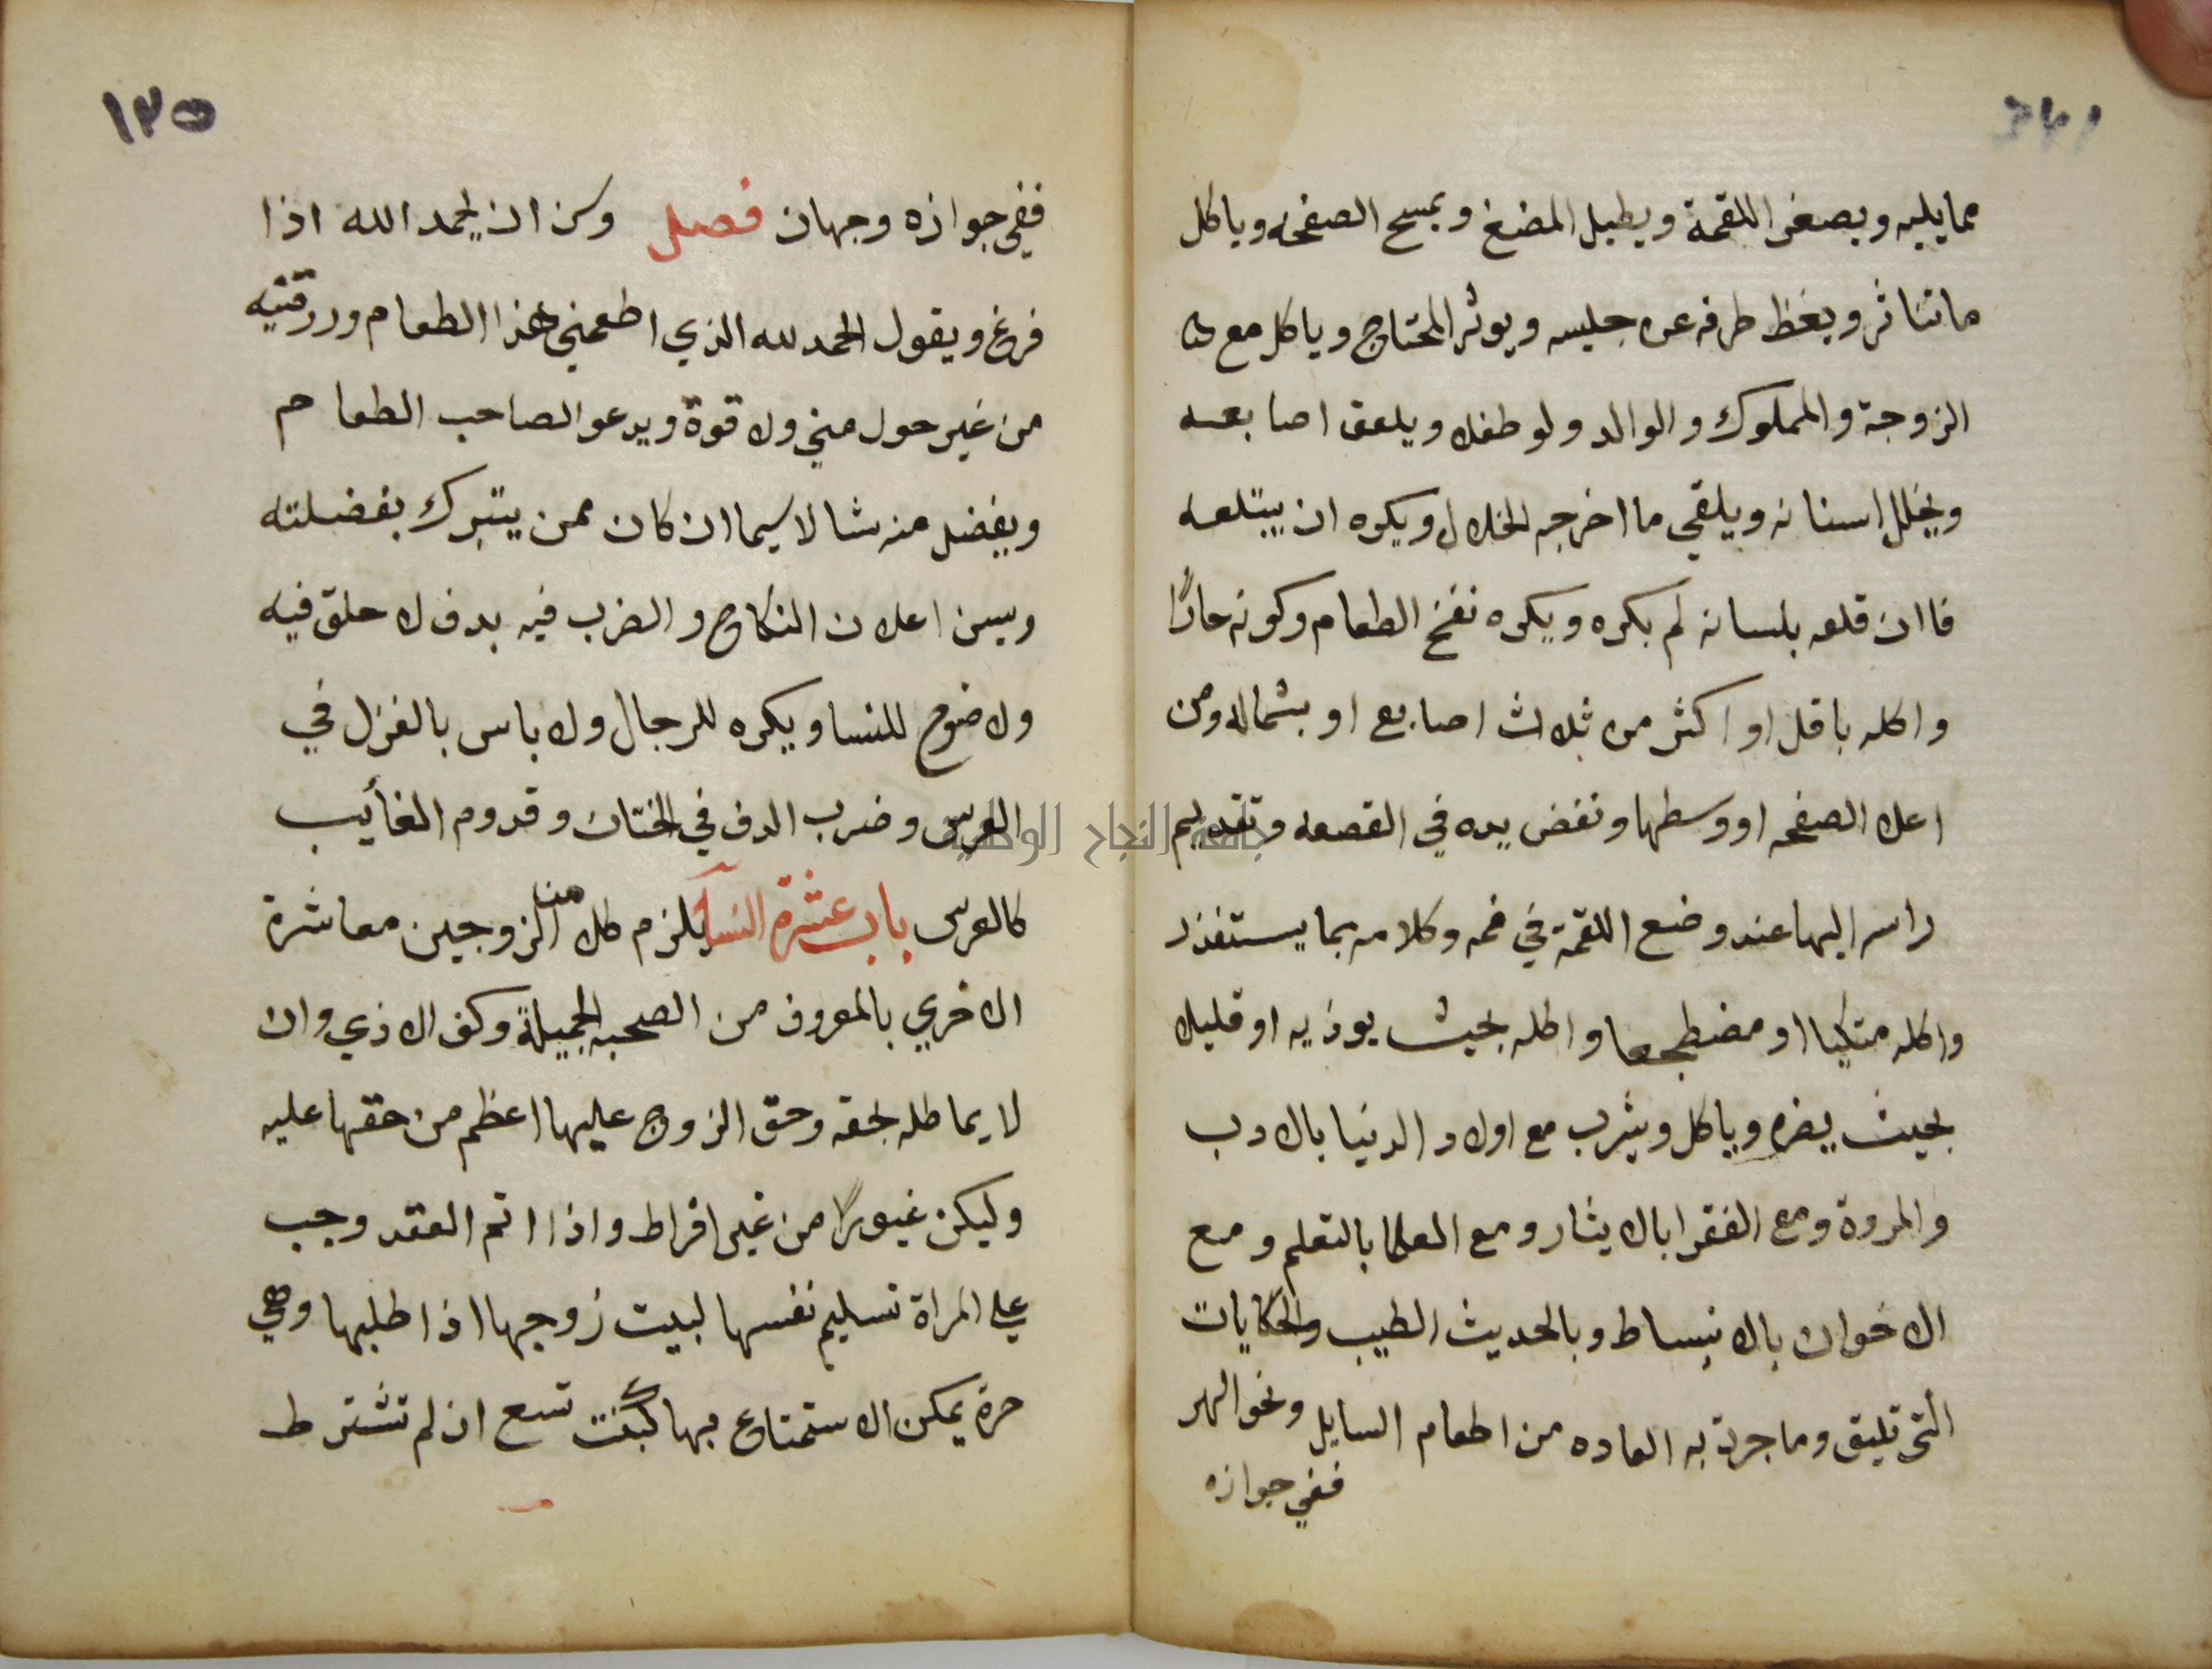 مما يليه ويصغر اللقمة ويطيل المضغ ويمسح الصفحه وياكل
ما تناثر ويغظ طرفه عن جليسه ويوثر المحتاج وياكل مع
الزوجة والمملوك والوالد ولو طفلا ويلعق اصابعه
ويخلل اسنانه ويلقي ما اخرجه الخلال ويكره ان يبتلعه
فاان قلعه بلسانه لم يكره ويكره نفخ الطعام وكونه حارًا
واكله باقل او اكثر من ثلاث اصابع او بشماله ومن
اعلا الصفحه او وسطها ونفض يده في القصعه وتقديم
راسه اليها عند وضع اللقمة في فمه وكلامه بما يستقذر
واكله متكيا او مضطجعا واكله بحيث يوذيه او قليلا
بحيث يضره وياكل ويشرب مع اولاد الدنيا بالادب
والمروة ومع الفقرا بالايثار ومع العلما بالتعلم ومع
الاخوان بالانبساط وبالحديث الطيب والحكايات
التي تليق وما جرت به العاده من اطعام السايل ونحو الهر
ففي جوازه
١٣٥
ففي جوازه وجهان فصل وسن ان يحمد الله اذا
فرغ ويقول الحمد لله الذي اطعمني هذا الطعام ورزقنيه
من غير حول مني ولا قوة ويدعو الصاحب الطعام
ويفضل منه شا لا سيما ان كان ممن يتبرك بفضلته
ويسن اعلان النكاح والضرب فيه بدف لا حلق فيه
ولا ضوج للنسا ويكره للرجال ولا باس بالغزل في
العرس وضرب الدف في الختان وقدوم الغأيب
كالعرس باب عشرة النسآ يلزم كل من الزوجين معاشرة
الاخري بالمعروف من الصحبه الجميلة وكف الاذي وان
لا يماطله بحقه وحق الزوج عليها اعظم من حقها عليه
وليكن غيورًا من غير افراط واذا اتم العقد وجب
علي المراة تسليم نفسها لبيت زوجها اذا طلبها وهي
حرة يمكن الاستمتاع بها كبنت تسع ان لم تشترط
جامعة النجاح الوطنية